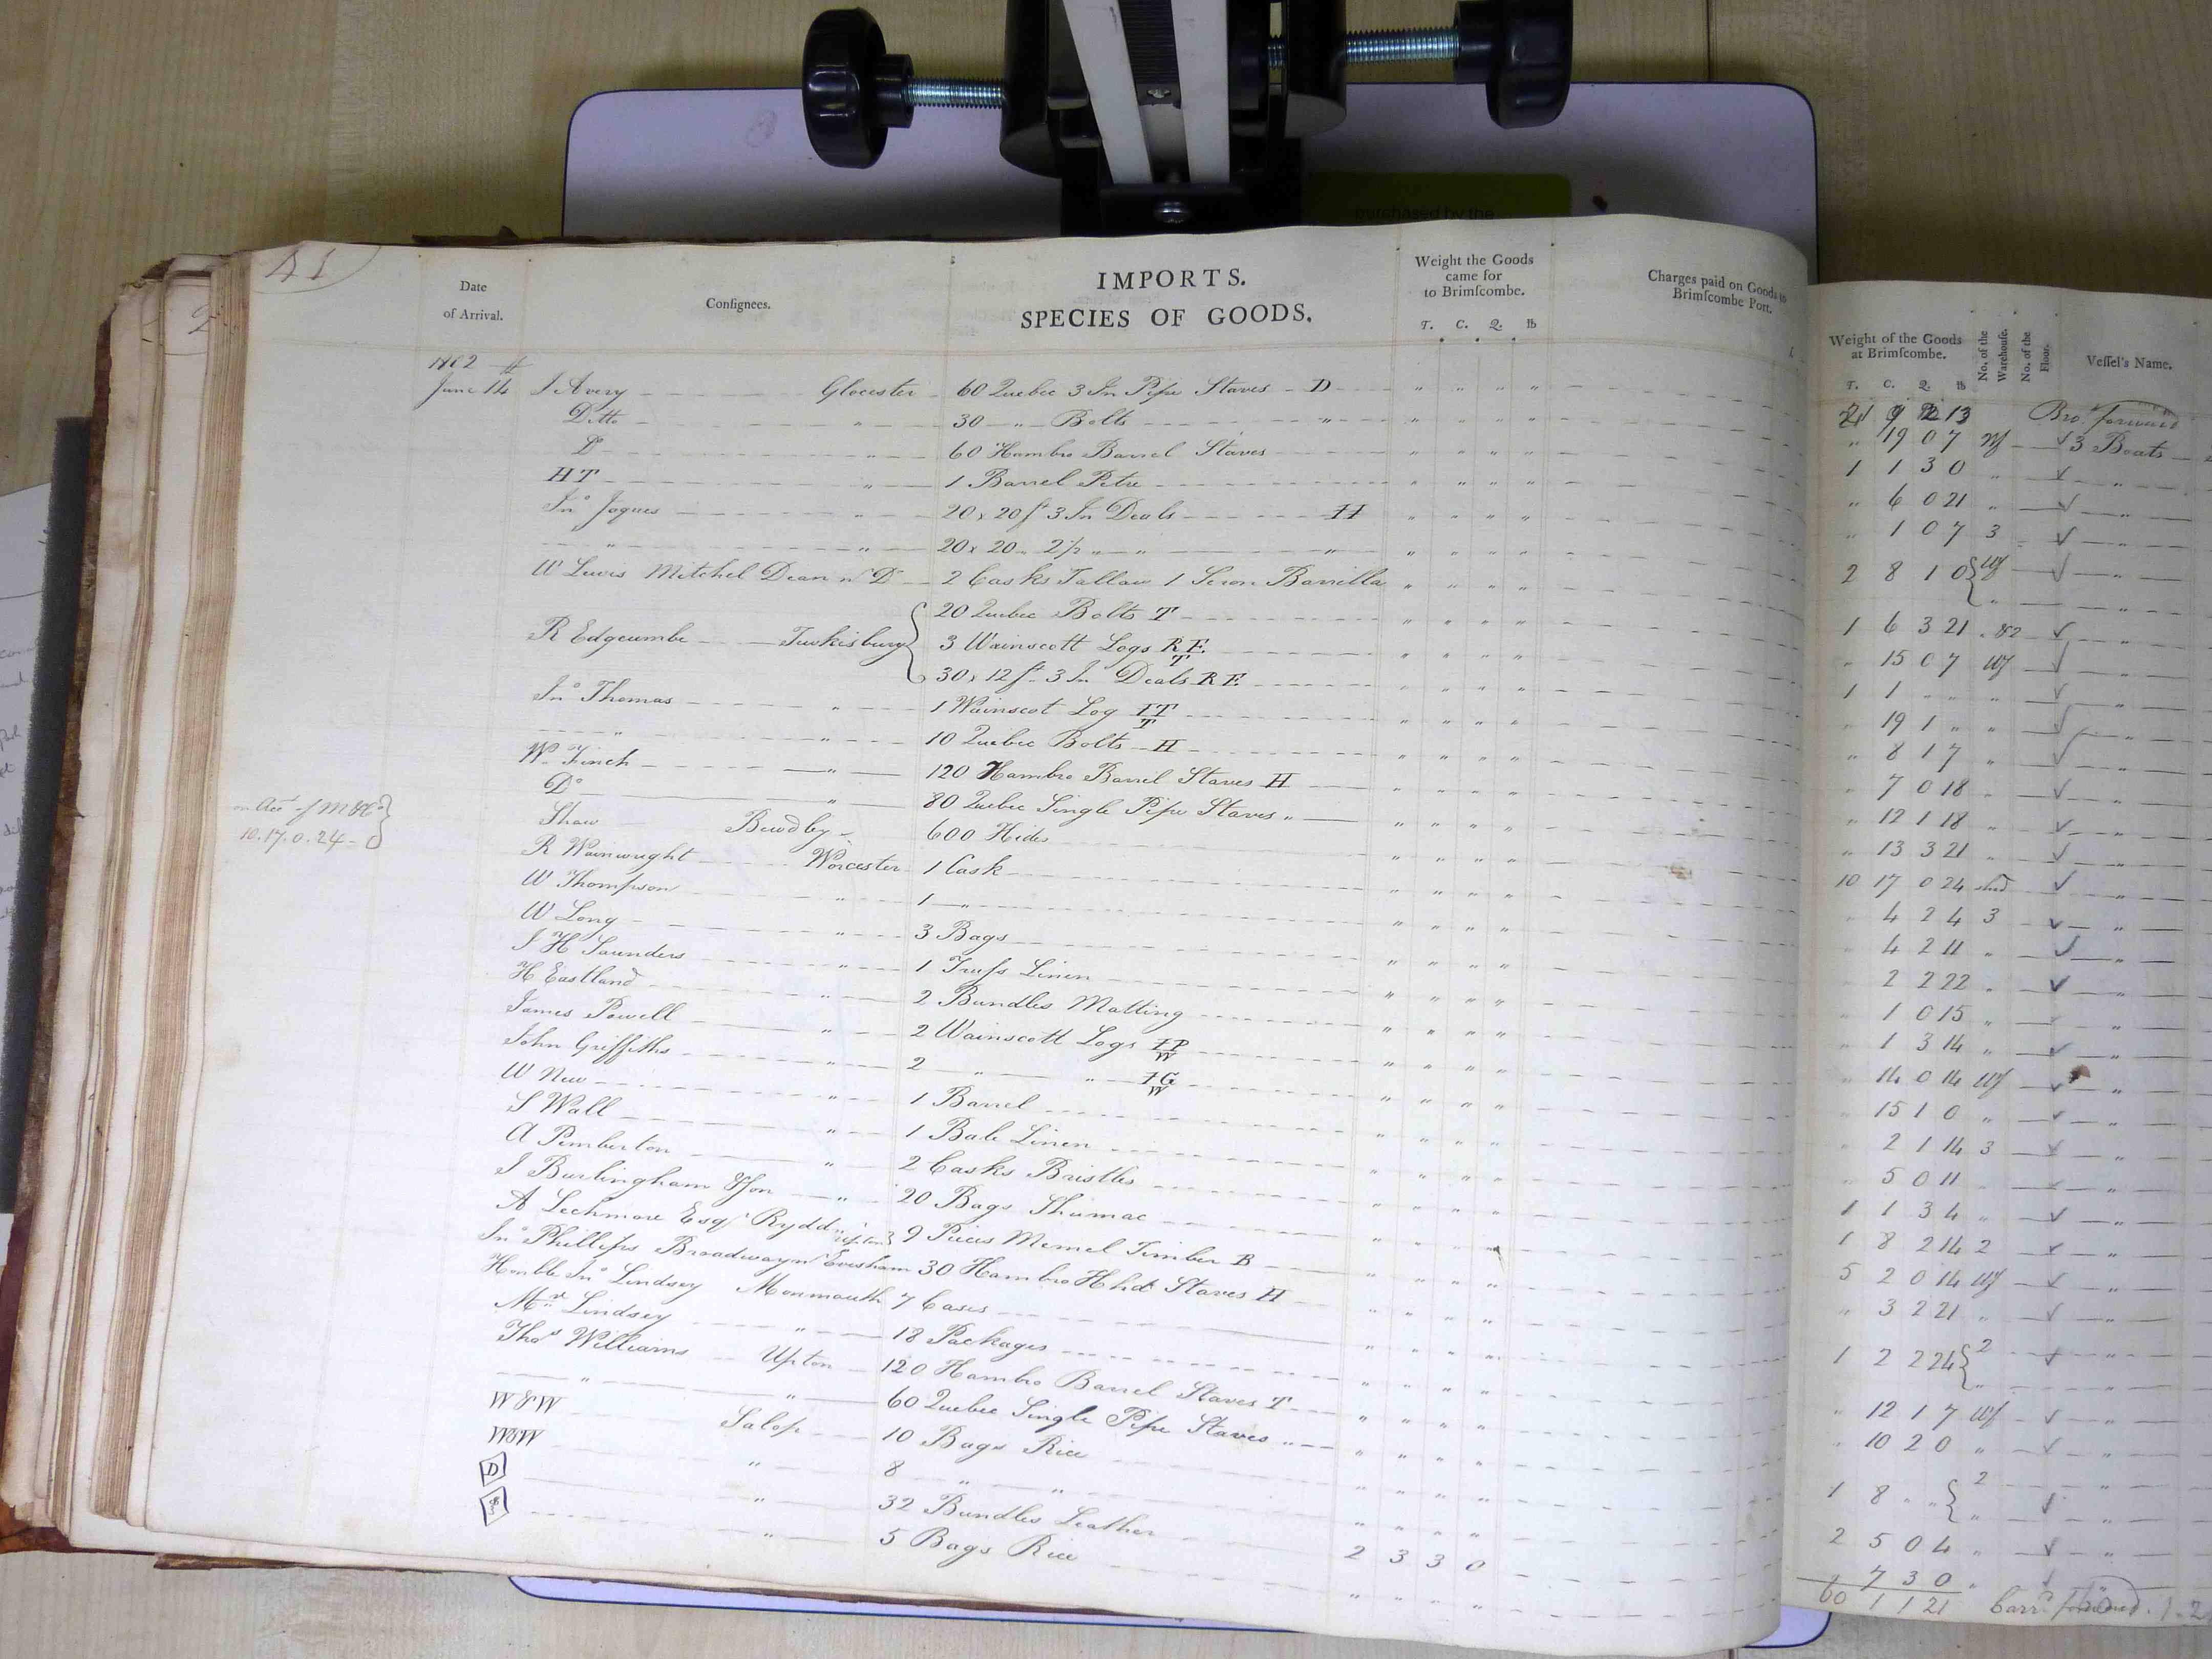 purchased by the
41
Date of Arrival.
Consignees.
IMPORTS.
SPECIES OF GOODS.
Weight the Goods came for to Brimſcombe.
T. C. Q. lb
Charges paid on Goods to Brimſcombe Port.
1802
June 14 J Avery Glocester 60 Quebec 3 In Pipe Staves D
Ditto " 30 " Bolts "
Do " 60 Hambro Barrel Staves
HT " 1 Barrel Petre
Jno Jaques " 20 x 20 ft 3 In Deals H
" " 20 x 20 " 2½ " " "
W Lewis Mitchel Dean n D 2 Casks Tallow 1 Seron Barrilla
20 Quebec Bolts T
R Edgcumbe Tewkisbury 3 Wainscott Logs R E T
30 x 12 ft 3 In Deals R E
Jno Thomas " 1 Wainscot Log IT T
" " 10 Quebec Bolts H
W Finch " 120 Hambro Barrel Staves H
Do " 80 Quebec Single Pipe Staves "
on Acct of M & Co
10.17.0.24
Shaw Bewdley 600 Hides
R Wainwright Worcester 1 Cask
W Thompson " 1 "
W Long " 3 Bags
J H Saunders " 1 Truſs Linen
H Eastland " 2 Bundles Matting
James Powell " 2 Wainscott Logs IP W
John Griffiths " 2 " " IG W
W New " 1 Barrel
S Wall " 1 Bale Linen
A Pemberton " 2 Casks Bristles
J Burlingham & Son " 20 Bags Shumac
A Lechmore Esqr Rydd nr Upton 9 Pieces Memel Timber B
Jno Phillips Broadway nr Evesham 30 Hambro Hhd Staves H
Honble Jno Lindsey Monmouth 7 Cases
Mrs Lindsey " 18 Packages
Thos Williams Upton 120 Hambro Barrel Staves T
" " 60 Quebec Single Pipe Staves "
W&W Salop 10 Bags Rice
W&W " 8 " "
D " 32 Bundles Leather 2 3 3 0
" 5 Bags Rice
Weight of the Goods at Brimſcombe.
T. C. Q. lb
No. of the Warehouſe.
No. of the Floor.
Veſſel's Name.
21 9 2 13 Bro forward
" 19 0 7 Wf 3 Boats
1 1 3 0 " "
" 6 0 21 " "
" 1 0 7 3 "
2 8 1 0 Wf "
1 6 3 21 " & 2 "
" 15 0 7 Wf "
1 1 " " " "
" 19 1 " " "
" 8 1 7 "
" 7 0 18 " "
" 12 1 18 " "
" 13 3 21 " "
10 17 0 24 shed "
" 4 2 4 3 "
" 4 2 11 " "
" 2 2 22 " "
" 1 0 15 " "
" 1 3 14 " "
" 14 0 14 Wf "
" 15 1 0 " "
" 2 1 14 3 "
" 5 0 11 " "
1 1 3 4 " "
1 8 2 14 2 "
5 2 0 14 Wf "
" 3 2 21 " "
1 2 2 24 2 "
" 12 1 7 Wf "
" 10 2 0 " "
1 8 " " 2 "
2 5 0 4 " "
" 7 3 0 "
60 1 1 21 Carrd forward